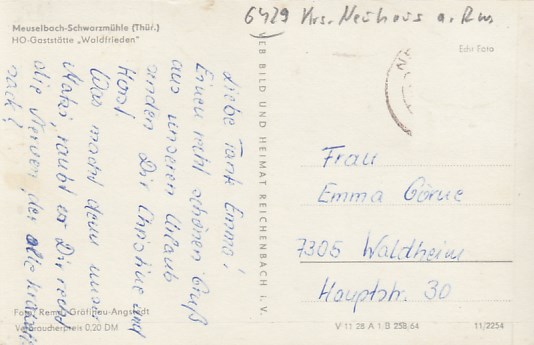 Meuselbach-Schwarzmühle (Thür.)
HO-Gaststätte „Waldfrieden"
6429 Krs. Neuhaus a. Rwg
Echt Foto
Liebe Tante Emma!
Einen recht schönen Gruß
aus unseren Urlaub
senden Dir Christine und
Horst
Was macht denn unser
Matzi, raubt er Dir recht
die Nerven, der alte
sack?
VEB BILD UND HEIMAT REICHENBACH i. V.
Frau
Emma Görne
7305 Waldheim
Hauptstr. 30
Foto: Remd, Gräfinau-Angstedt
Verbraucherpreis 0,20 DM
V 11 28 A 1 B 258/64
11/2254